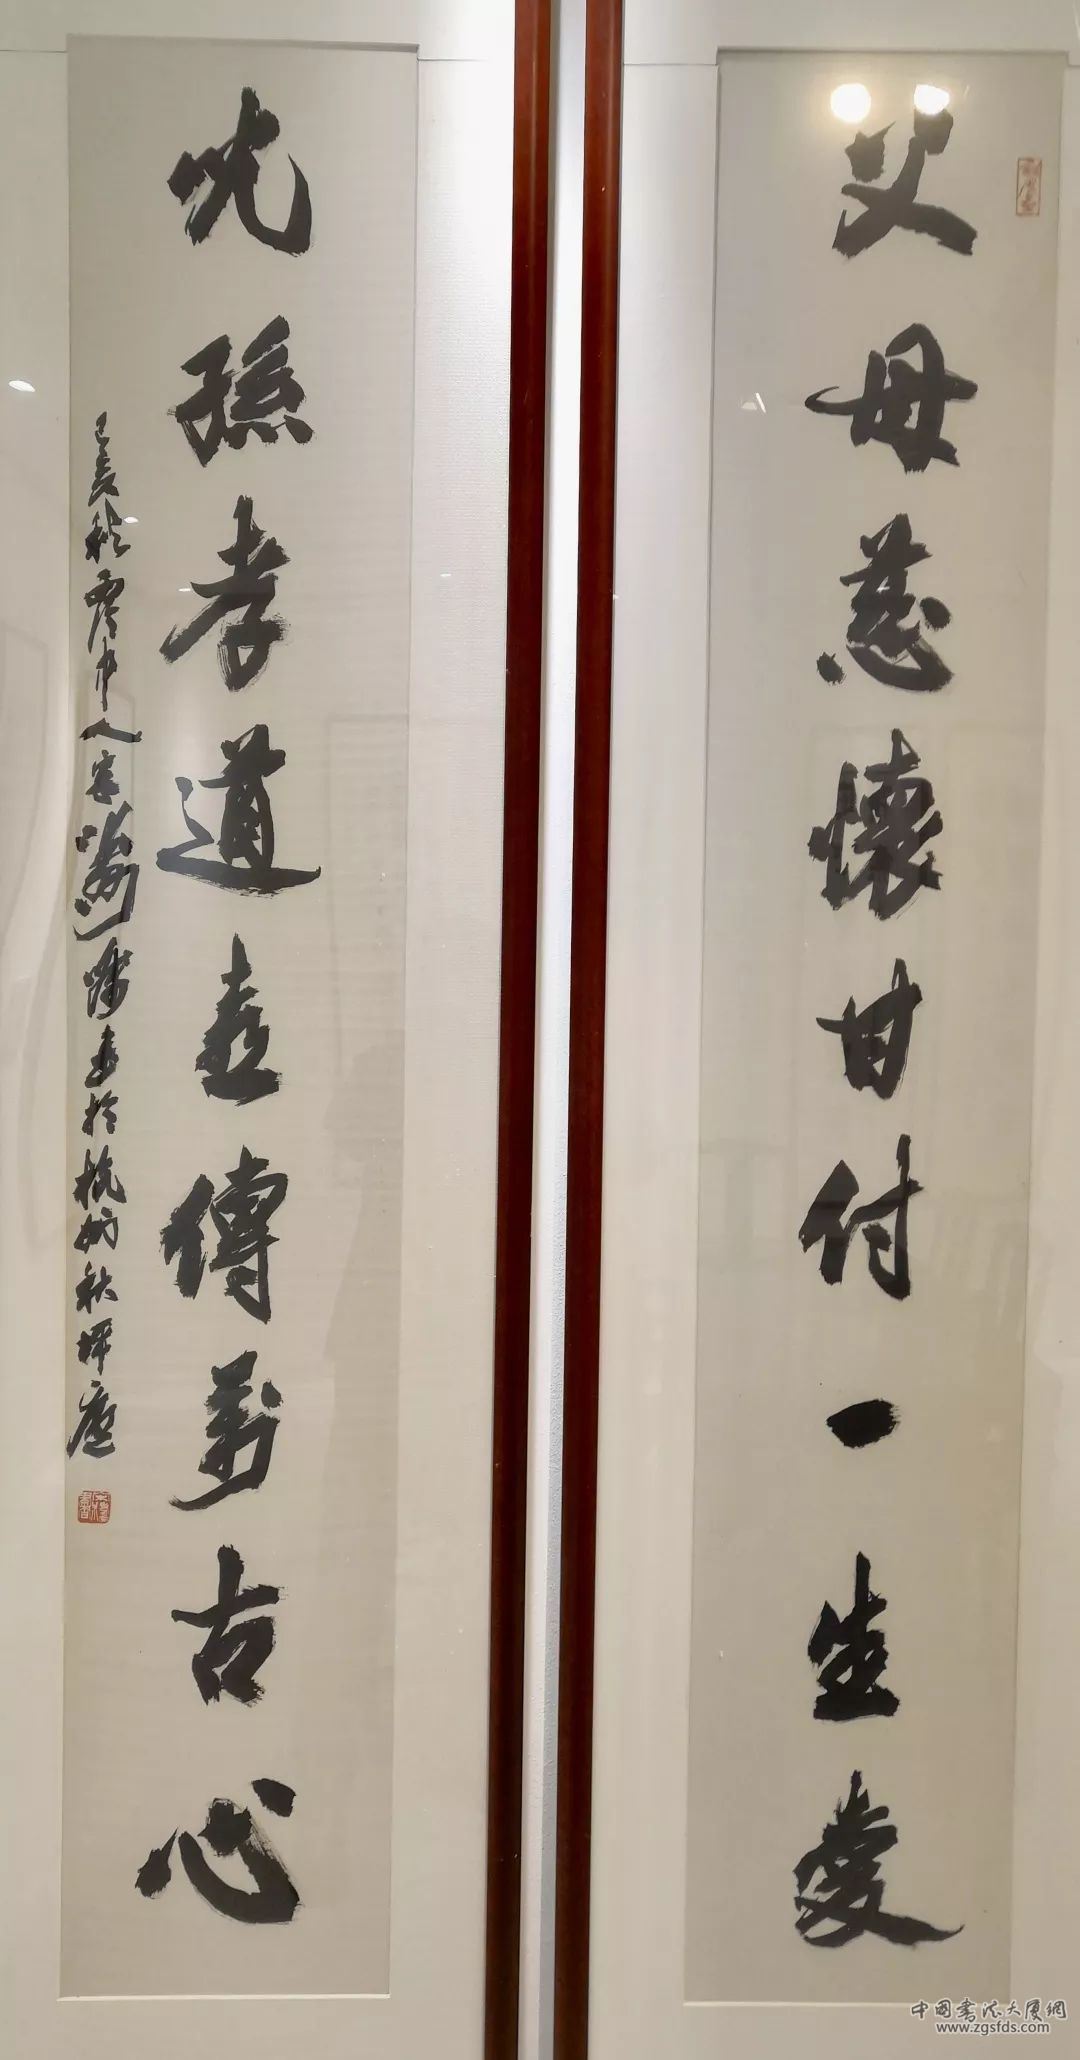 父母慈懷甘付一生愛
孫孝道傳萬古心
己亥秋雲中人書於杭州秋坪廬
中國書法大廈網
www.zgsfds.com